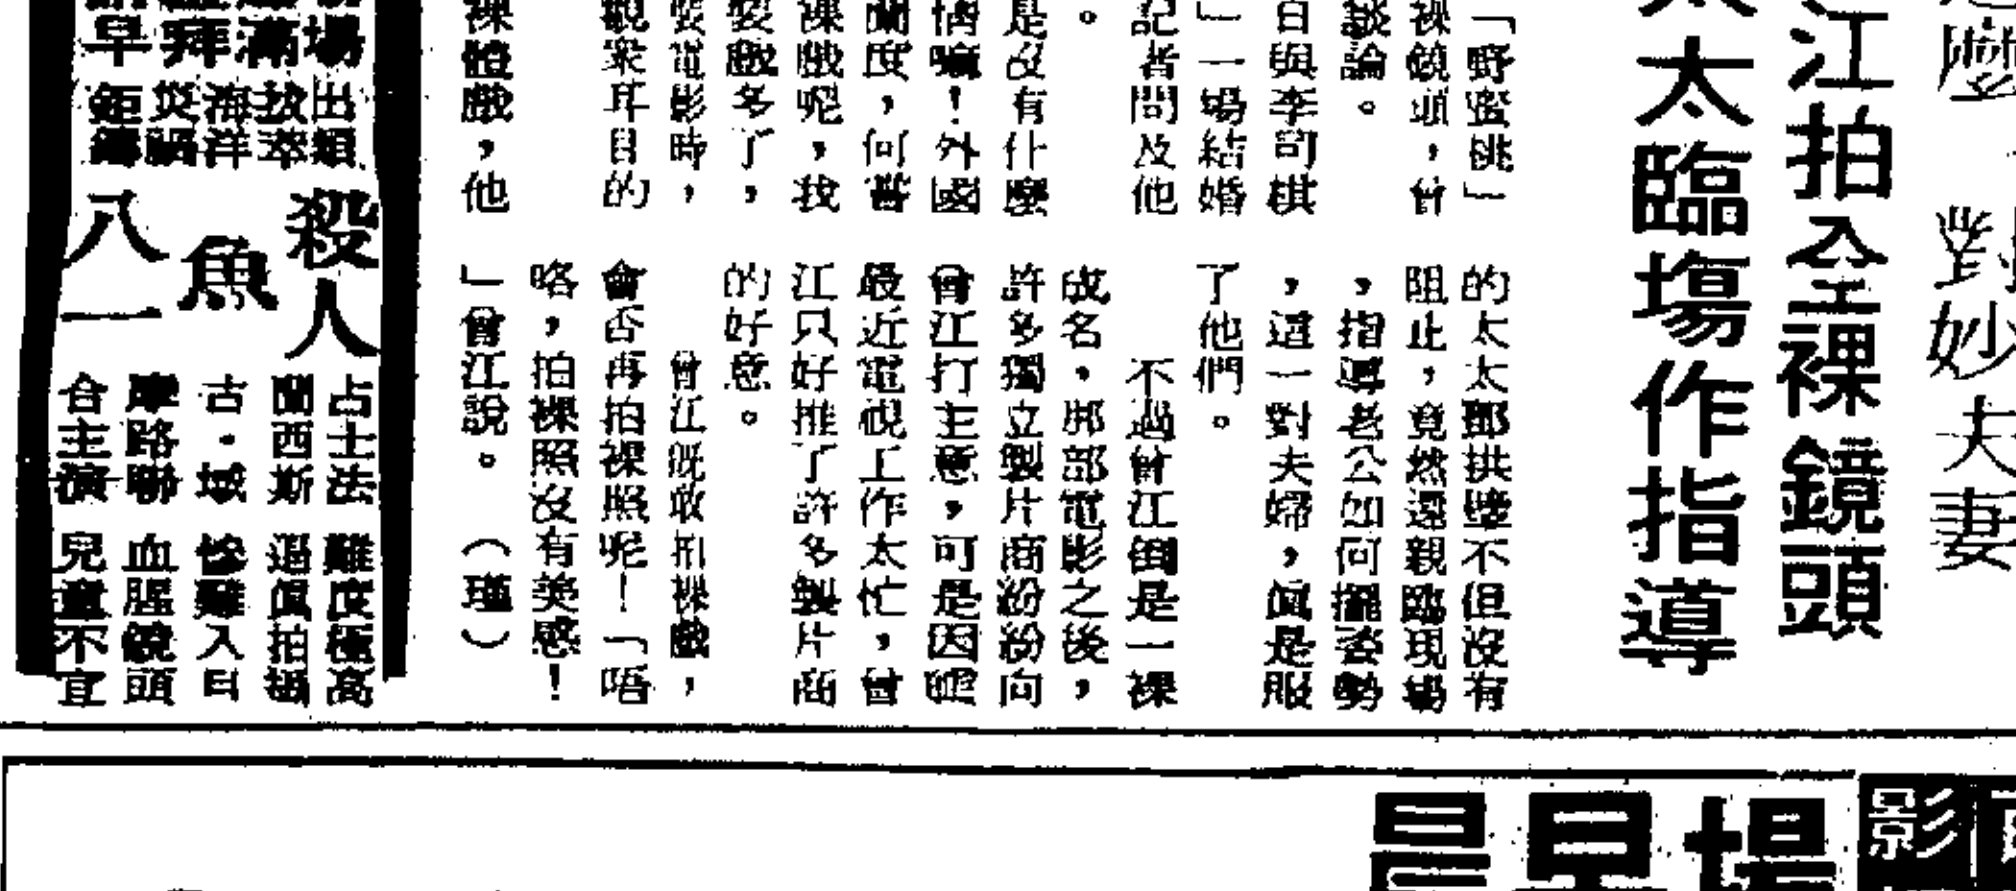 對妙夫妻
江拍全裸鏡頭
太臨場作指導
「野蜜桃」
裸鏡頭，曾
談論。
日與李司棋
」一場結婚
記者問及他
。
是沒有什麼
情嘛！外國
蘭度，何嘗
裸戲呢，我
製戲多了，
製電影時，
觀衆耳目的
裸體戲，他
的太太鄧拱璧不但沒有
阻止，竟然還親臨現場
，指導老公如何擺姿勢
，這一對夫婦，眞是服
了他們。
不過曾江倒是一裸
成名，那部電影之後，
許多獨立製片商紛紛向
曾江打主意，可是因爲
最近電視工作太忙，曾
江只好推了許多製片商
的好意。
曾江旣敢拍裸戲，
會否再拍裸照呢！「唔
咯，拍裸照沒有美感！
」曾江說。（瑾）
場出類
滿拔萃
海洋
拜災禍
早鉅鑄
殺人
魚
八一
占士法
蘭西斯
古·域
摩路聯
合主演
難度極高
逼眞拍攝
慘難入目
血腥鏡頭
兒童不宜
影
場
早